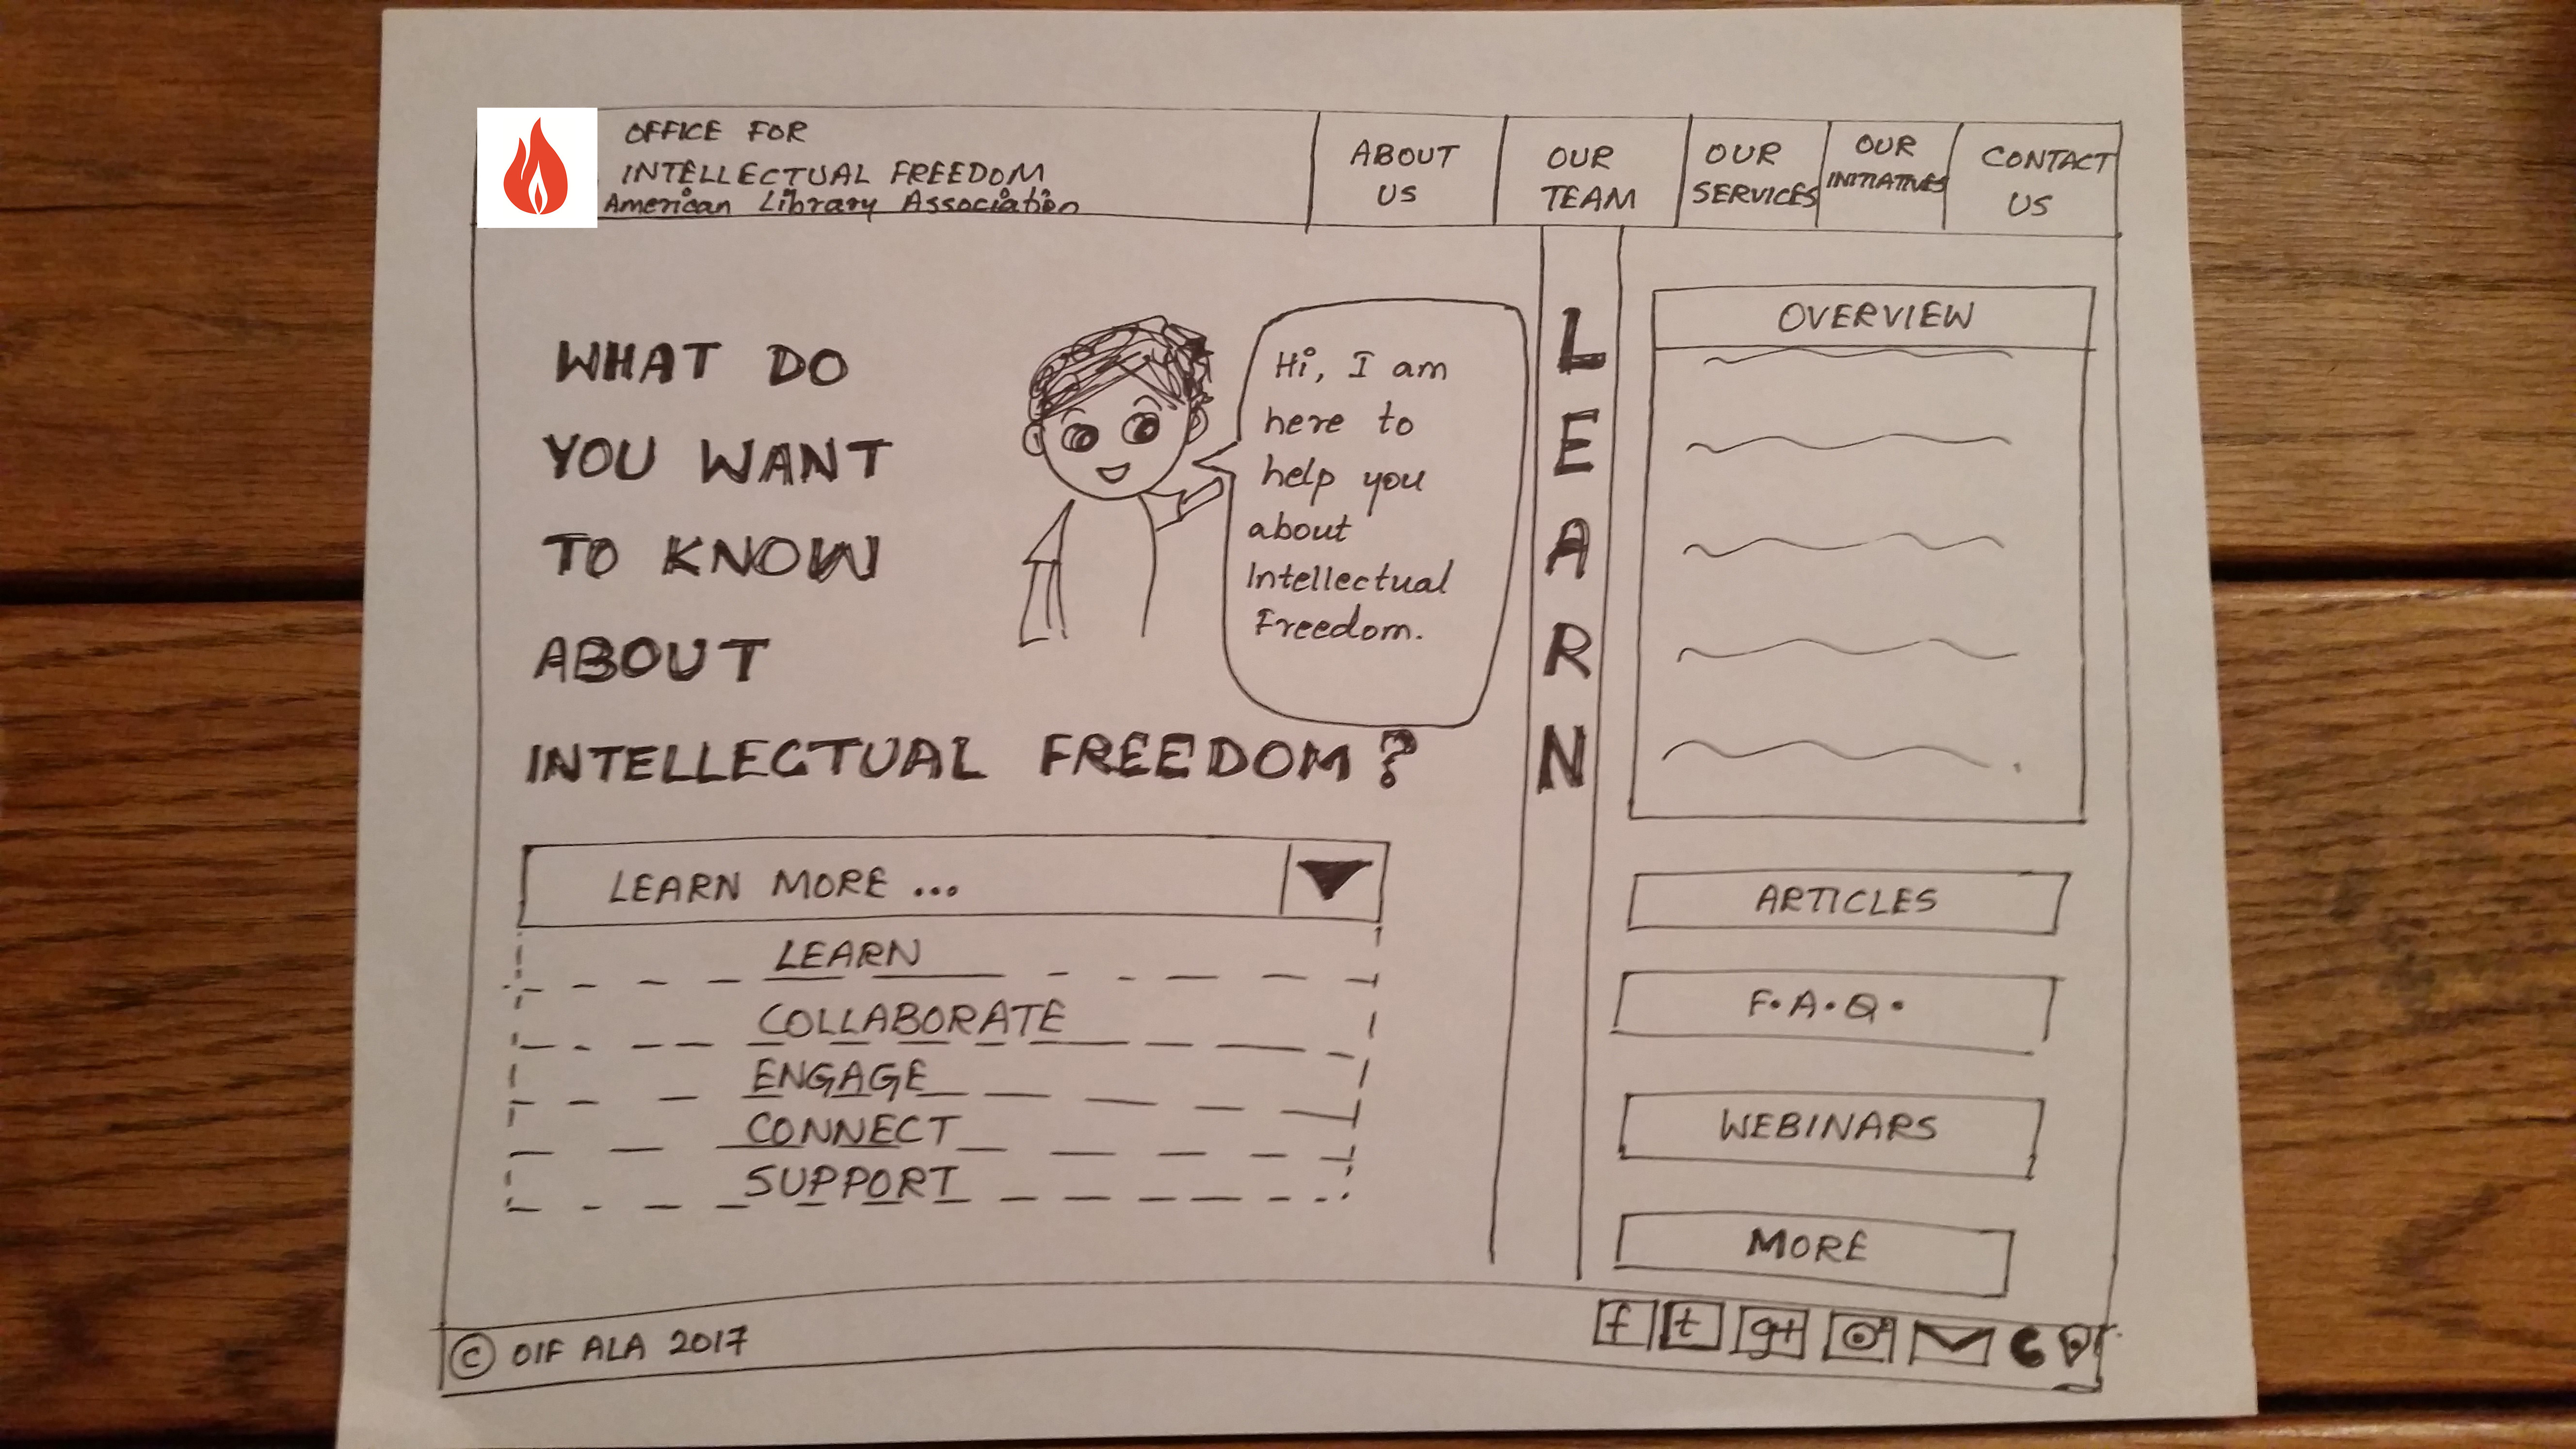 OFFICE FOR
INTELLECTUAL FREEDOM
American Library Association
ABOUT
US
OUR
TEAM
OUR
SERVICES
OUR
INITIATIVES
CONTACT
US
WHAT DO
YOU WANT
TO KNOW
ABOUT
INTELLECTUAL FREEDOM?
Hi, I am
here to
help you
about
Intellectual
Freedom.
LEARN MORE ...
LEARN
COLLABORATE
ENGAGE
CONNECT
SUPPORT
LEARN
OVERVIEW
ARTICLES
F.A.Q.
WEBINARS
MORE
© OIF ALA 2017
f
t
g+